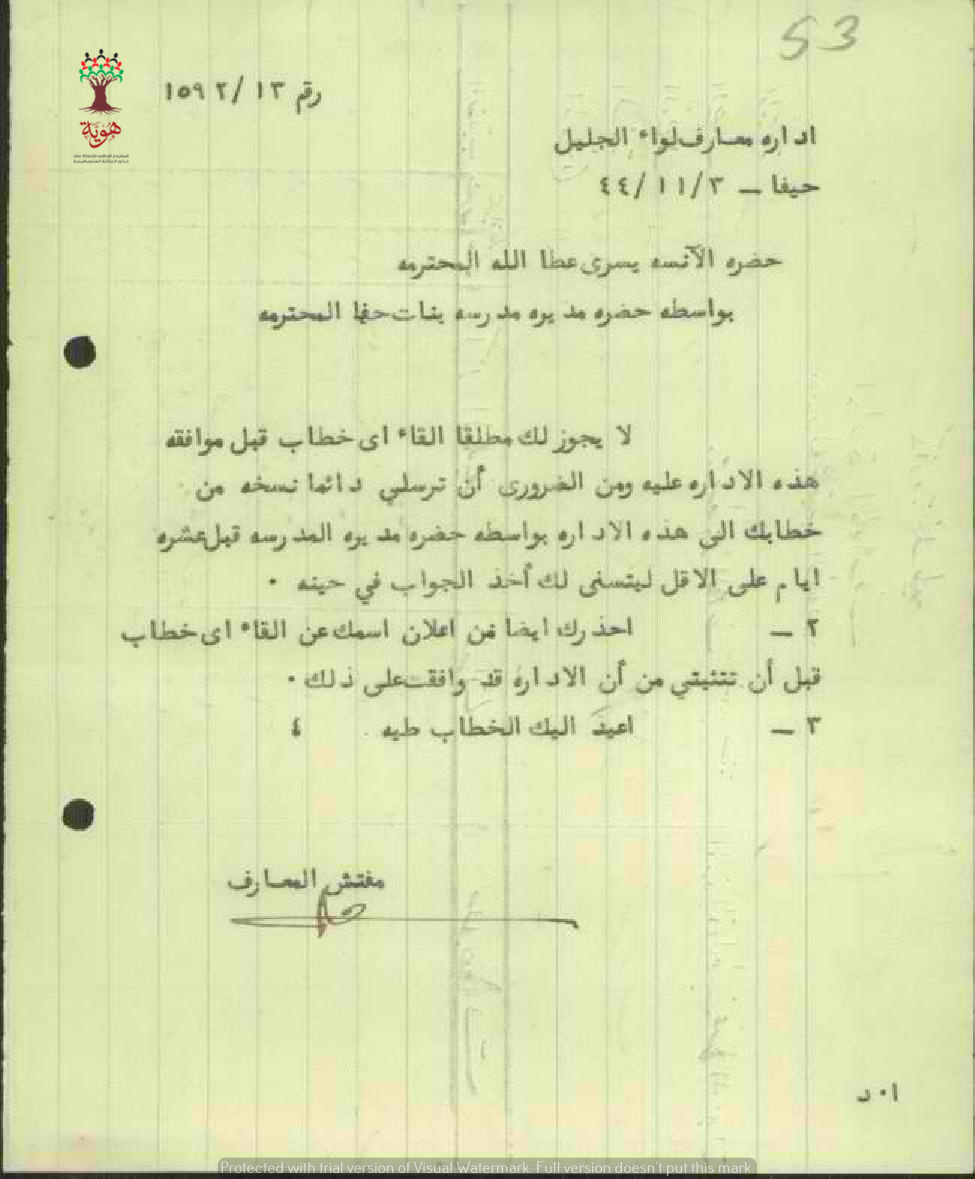 53
هوية
رقم ١٣/ ١٥٩٢
اداره معارف لواء الجليل
حيفا – ٤٤/١١/٣
حضره الآنسه يسرى عطا الله المحترمه
بواسطه حضره مديره مدرسه بنات حيفا المحترمه
لا يجوز لك مطلقا القاء اى خطاب قبل موافقه
هذه الاداره عليه ومن الضرورى أن ترسلي دائما نسخه من
خطابك الى هذه الاداره بواسطه حضره مديره المدرسه قبل عشره
ايام على الاقل ليتسنى لك أخذ الجواب في حينه .
٢ – احذرك ايضا من اعلان اسمك عن القاء اى خطاب
قبل أن تتثبتي من أن الاداره قد وافقت على ذلك .
٣ – اعيد اليك الخطاب طيه ٤
مفتش المعارف
ا.د
Protected with trial version of Visual Watermark. Full version doesn't put this mark.